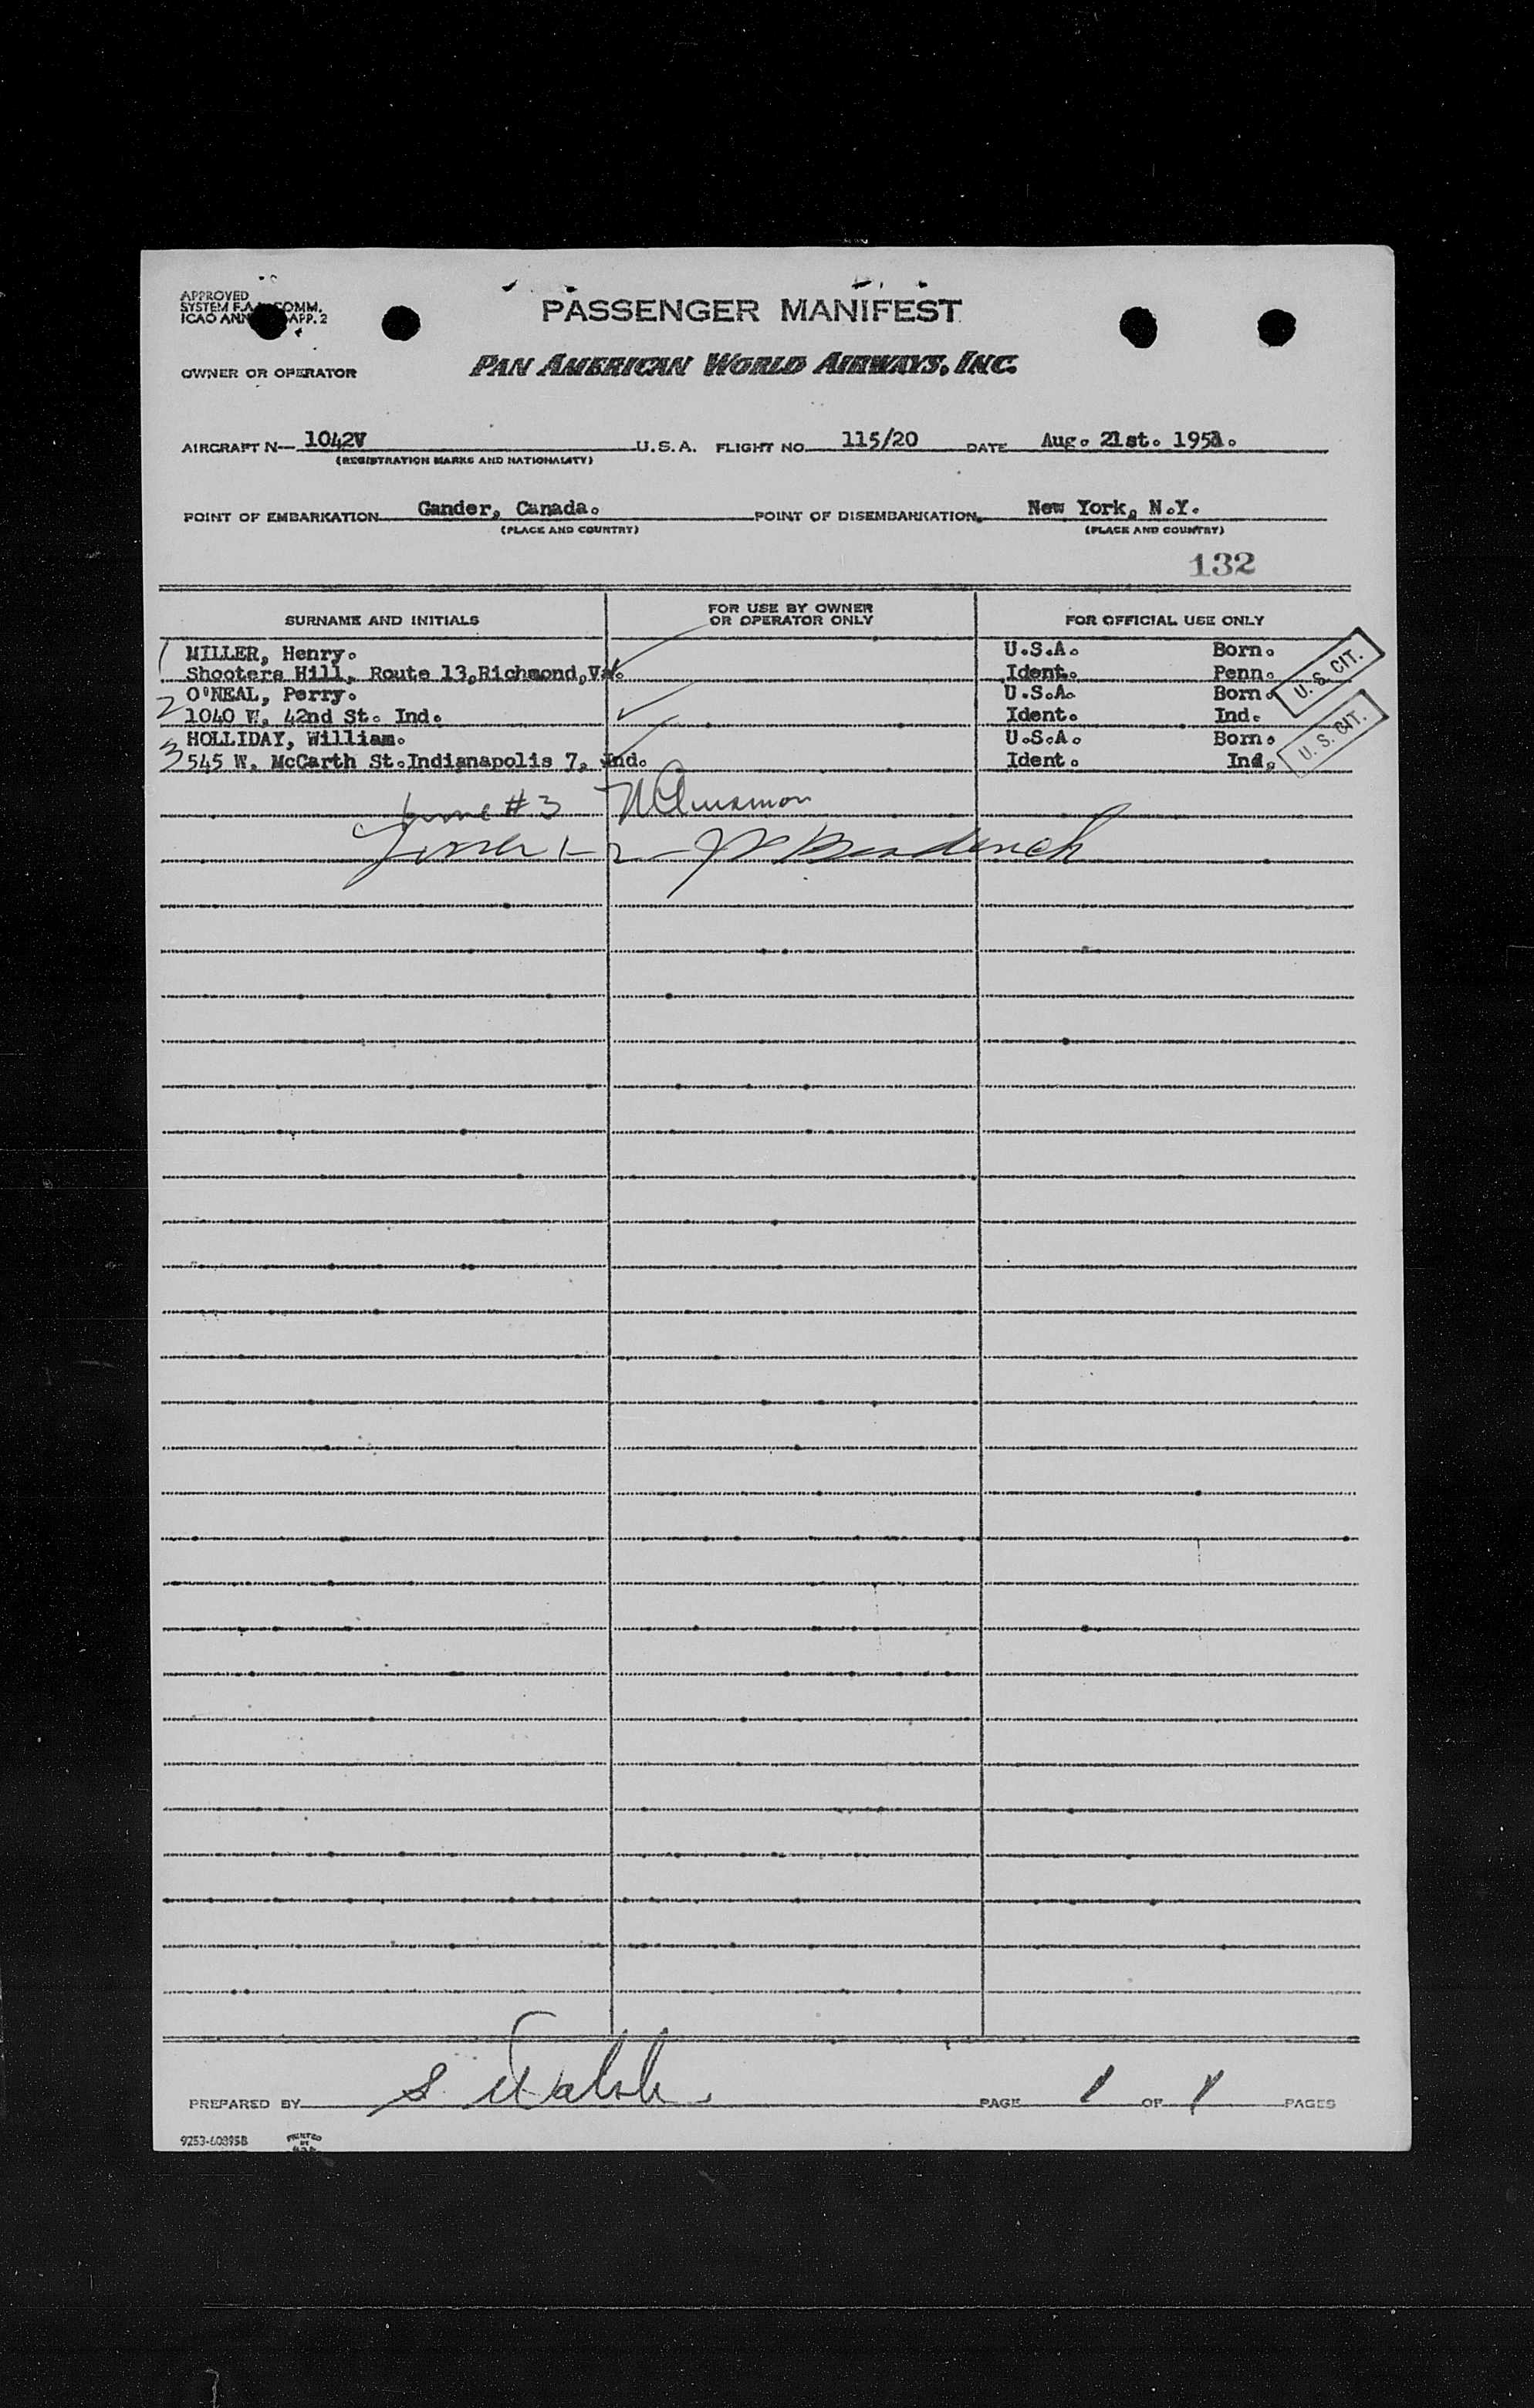 APPROVED
SYSTEM F.A. COMM.
ICAO ANN APP. 2
PASSENGER MANIFEST
OWNER OR OPERATOR PAN AMERICAN WORLD AIRWAYS, INC.
AIRCRAFT N— 1042V U.S.A. FLIGHT NO. 115/20 DATE Aug. 21st. 1951.
(REGISTRATION MARKS AND NATIONALITY)
POINT OF EMBARKATION Gander, Canada. POINT OF DISEMBARKATION New York, N.Y.
(PLACE AND COUNTRY) (PLACE AND COUNTRY)
132
SURNAME AND INITIALS FOR USE BY OWNER OR OPERATOR ONLY FOR OFFICIAL USE ONLY
1 MILLER, Henry. U.S.A. Born.
Shooters Hill, Route 13, Richmond, Va. Ident. Penn. U. S. CIT.
2 O'NEAL, Perry. U.S.A. Born.
1040 W. 42nd St. Ind. Ident. Ind.
3 HOLLIDAY, William. U.S.A. Born. U. S. CIT.
545 W. McCarth St. Indianapolis 7, Ind. Ident. Ind.
#3
1-2
PREPARED BY S Walsh PAGE 1 OF 1 PAGES
9253-60895B PRINTED IN